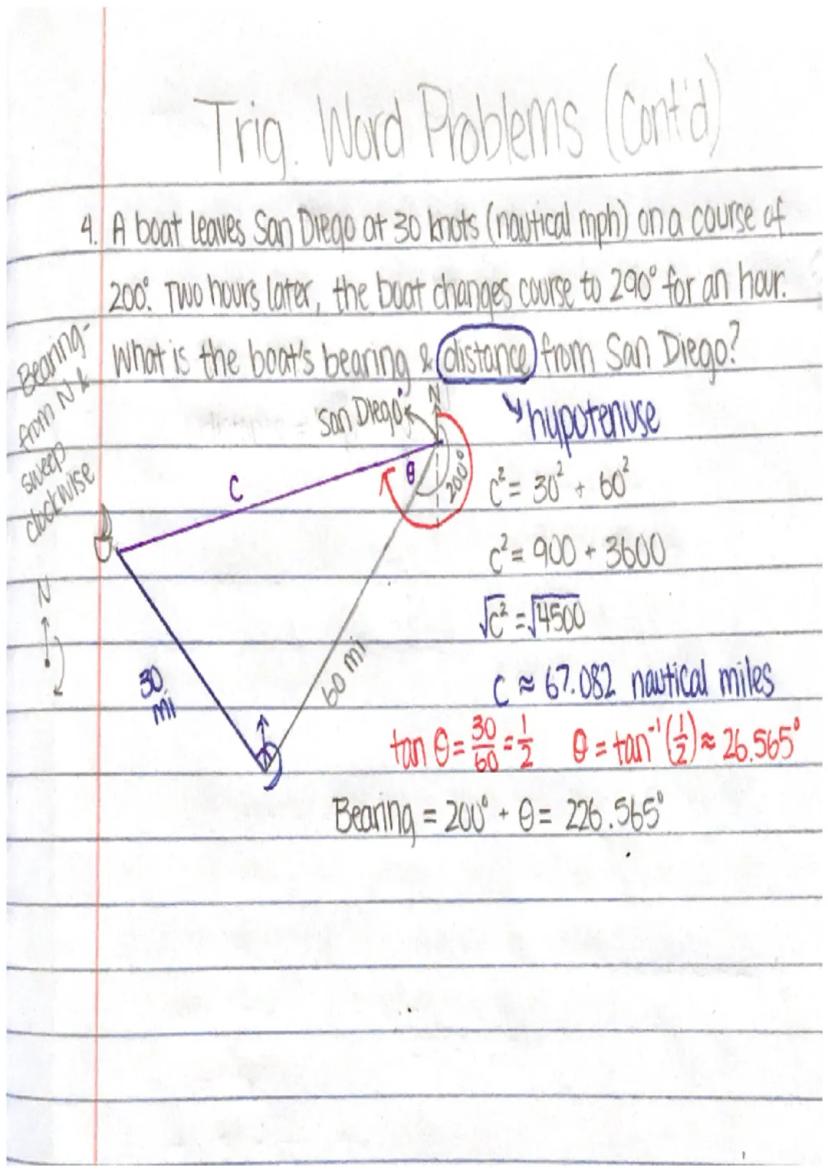 Trig. Word Problems (Cont'd)
4. A boat leaves San Diego at 30 knots (nautical mph) on a course of
200°. Two hours later, the boat changes course to 290° for an hour.
What is the boat's bearing & distance from San Diego?
Bearing-
from N &
sweep
clockwise
N
San Diego
N
↘ hypotenuse
θ
200°
C
c² = 30² + 60²
c² = 900 + 3600
√c² = √4500
c ≈ 67.082 nautical miles
30
mi
60 mi
tan θ = 30/60 = 1/2 θ = tan⁻¹ (1/2) ≈ 26.565°
Bearing = 200° + θ = 226.565°